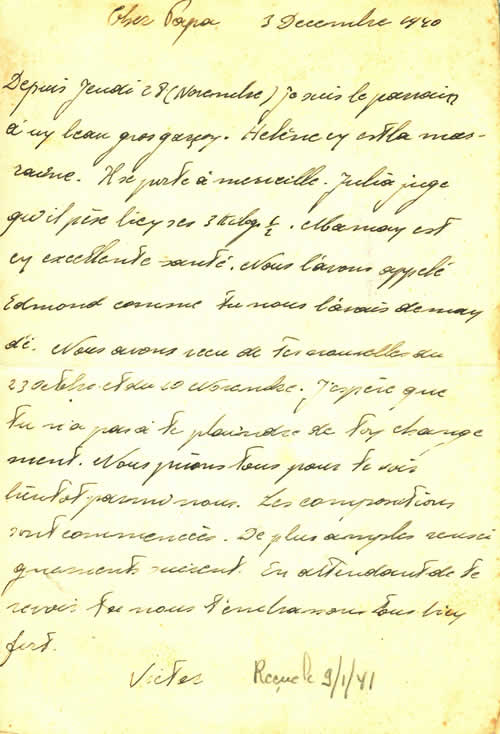 Cher Papa 3 Decembre 1940
Depuis Jeudi 28 (Novembre) Je suis le parrain
à un beau gros garçon. Helène en est la mar-
raine. Il se porte à merveille. Julia juge
qu'il pèse bien ses 3 Kilog ½. Maman est
en excellente santé. Nous l'avons appelé
Edmond comme tu nous l'avais deman
dé. Nous avons recu de tes nouvelles du
23 octobre et du 20 Novembre. J'espère que
tu n'a pas à te plaindre de ton change
ment. Nous prions tous pour te voir
bientot parmi nous. Les compositions
sont commencées. De plus amples rensei
gnements suivent. En attendant de te
revoir tu nous t'embrassons tous bien
fort.
Victor Reçue le 9/1/41